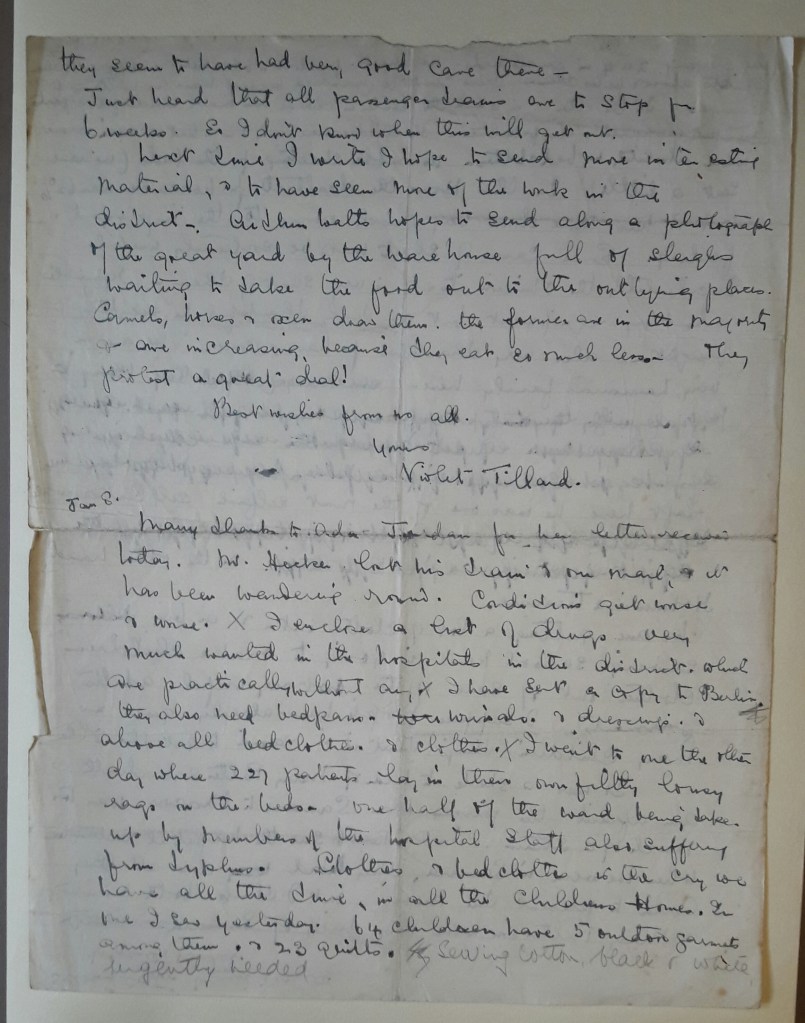 they seem to have had very good care there –
Just heard that all passenger trains are to stop for
6 weeks. So I don't know when this will get out.
Next time I write I hope to send more interesting
material, & to have seen more of the work in the
district –. Arthur Watts hopes to send along a photograph
of the great yard by the warehouse full of sleighs
waiting to take the food out to the outlying places.
Camels, horses & oxen draw them. the former are in the majority
& are increasing, because they eat so much less – They
protest a great deal!
Best wishes from us all.
Yours
Violet Tillard.
Jan 8.
Many thanks to Ada Jordan for her letter received
today. Mr. Hecker lost his train & our mail, & it
has been wandering round. Conditions get worse
& worse. X I enclose a list of drugs very
much wanted in the hospitals in the district. which
are practically without any X I have sent a copy to Berlin.
they also need bedpans – urinals. & dressings. &
above all bedclothes. & clothes. X I went to one the other
day where 227 patients lay in their own filthy lousy
rags on the beds – one half of the ward being taken
up by members of the hospital staff also suffering
from typhus. Clothes & bedclothes is the cry we
have all the time, in all the Childrens Homes. In
one I saw yesterday. 64 children have 5 outdoor garments
among them. & 23 quilts. Sewing cotton, black & white
urgently needed